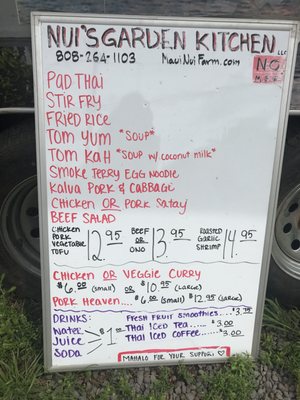 NUI'S GARDEN KITCHEN LLC
808-264-1103 MauiNuiFarm.com
NO
PAD THAI
STIR FRY
FRIED RICE
TOM YUM *SOUP*
TOM KAH *SOUP w/ coconut milk*
SMOKE TERRY EGG NOODLE
KALUA PORK & CABBAGE
CHICKEN OR PORK SATAY
BEEF SALAD
CHICKEN PORK VEGETABLE TOFU 12.95 BEEF OR ONO 13.95 ROASTED GARLIC SHRIMP 14.95
CHICKEN OR VEGGIE CURRY
$6.00 (SMALL) OR $10.95 (LARGE)
PORK HEAVEN.... $6.00 (SMALL) $12.95 (LARGE)
DRINKS: FRESH FRUIT SMOOTHIES...$3.75
WATER JUICE SODA $1.00
THAI ICED TEA..... $3.00
THAI ICED COFFEE...$3.00
MAHALO FOR YOUR SUPPORT